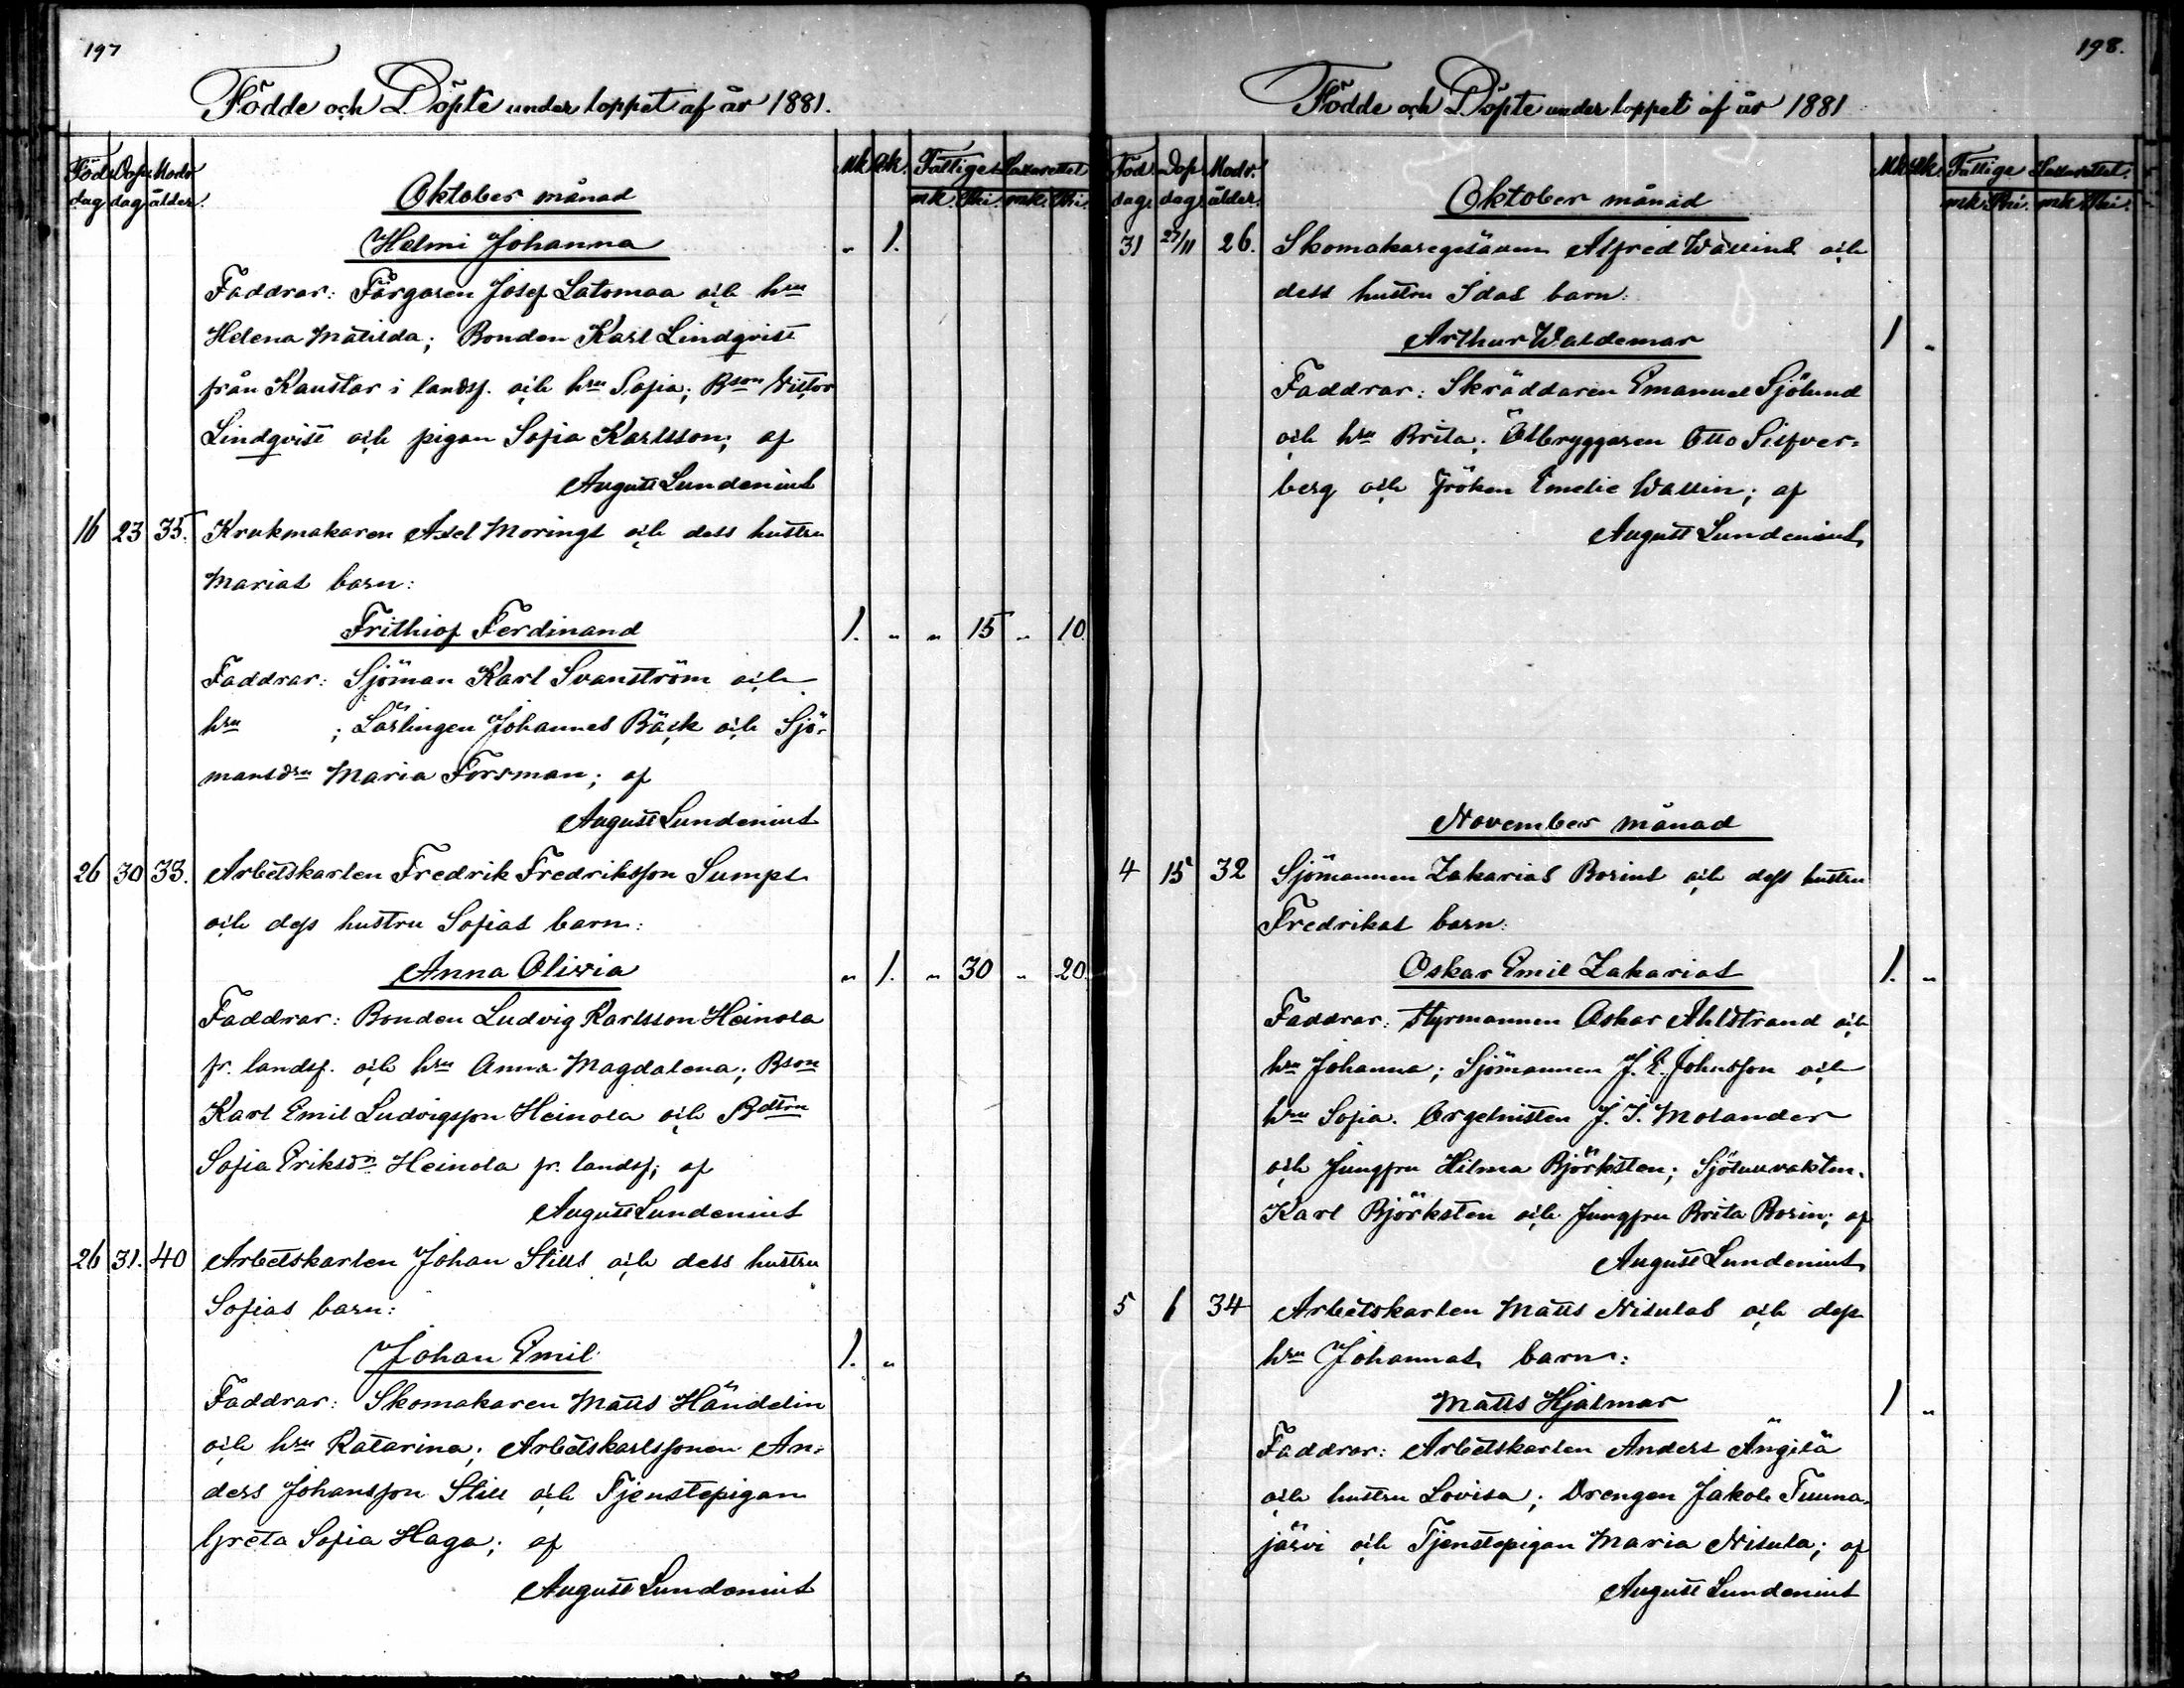 197
Födde och Döpte under loppet af år 1881.
Föd. dag Dop. dag Modr. ålder. Mk Qk. Fattige mk. Pni. Lazarettet mk. Pni.
Oktober månad
Helmi Johanna " 1.
Faddrar: Färgaren Josef Latomaa och hru
Helena Matilda; Bonden Karl Lindqvist
från Kaustar i landsf. och hru Sofia; Bson Victor
Lindqvist och pigan Sofia Karlsson; af
August Lundenius
16 23 35. Krukmakaren Axel Morings och dess hustru
Marias barn:
Frithiof Ferdinand 1. " " 15 " 10.
Faddrar: Sjöman Karl Svanström och
hru ; Lärlingen Johannes Bäck och Sjö-
mansdrn Maria Forsman; af
August Lundenius
26 30 33. Arbetskarlen Fredrik Fredriksson Sumps
och dess hustru Sofias barn:
Anna Olivia " 1. " 30 " 20.
Faddrar: Bonden Ludvig Karlsson Heinola
fr. landsf. och hru Anna Magdalena; Bson
Karl Emil Ludvigsson Heinola och Bdtrn
Sofia Eriksdr Heinola fr. landsf; af
August Lundenius
26 31. 40 Arbetskarlen Johan Stills och dess hustru
Sofias barn:
Johan Emil 1. "
Faddrar: Skomakaren Matts Händelin
och hru Katarina; Arbetskarlssonen An-
ders Johansson Still och Tjenstepigan
Greta Sofia Haga; af
August Lundenius
198.
Födde och Döpte under loppet af år 1881
Föd. dag. Dop. dag. Modr. ålder. Mk Qk. Fattige mk Pni. Lazarettet. mk Pni.
Oktober månad
31 27/11 26. Skomakaregesällen Alfred Wallins och
dess hustru Idas barn:
Arthur Waldemar 1 "
Faddrar: Skräddaren Emanuel Sjölund
och hru Brita; Ölbryggaren Otto Silfver-
berg och Fröken Emelie Wallin; af
August Lundenius
November månad
4 15 32 Sjömannen Zakarias Bosins och dess hustru
Fredrikas barn:
Oskar Emil Zakarias 1. "
Faddrar: Styrmannen Oskar Ahlstrand och
hru Johanna; Sjömannen J. E. Johnsson och
hru Sofia. Orgelnisten J. I. Molander
och Jungfru Hilma Björksten; Sjötullvakten
Karl Björksten och Jungfru Brita Bosin; af
August Lundenius
5 6 34 Arbetskarlen Matts Nisulas och dess
hru Johannas barn:
Matts Hjalmar 1 "
Faddrar: Arbetskarlen Anders Ängilä
och hustru Lovisa; Drengen Jakob Tuuna-
järvi och Tjenstepigan Maria Nisula; af
August Lundenius